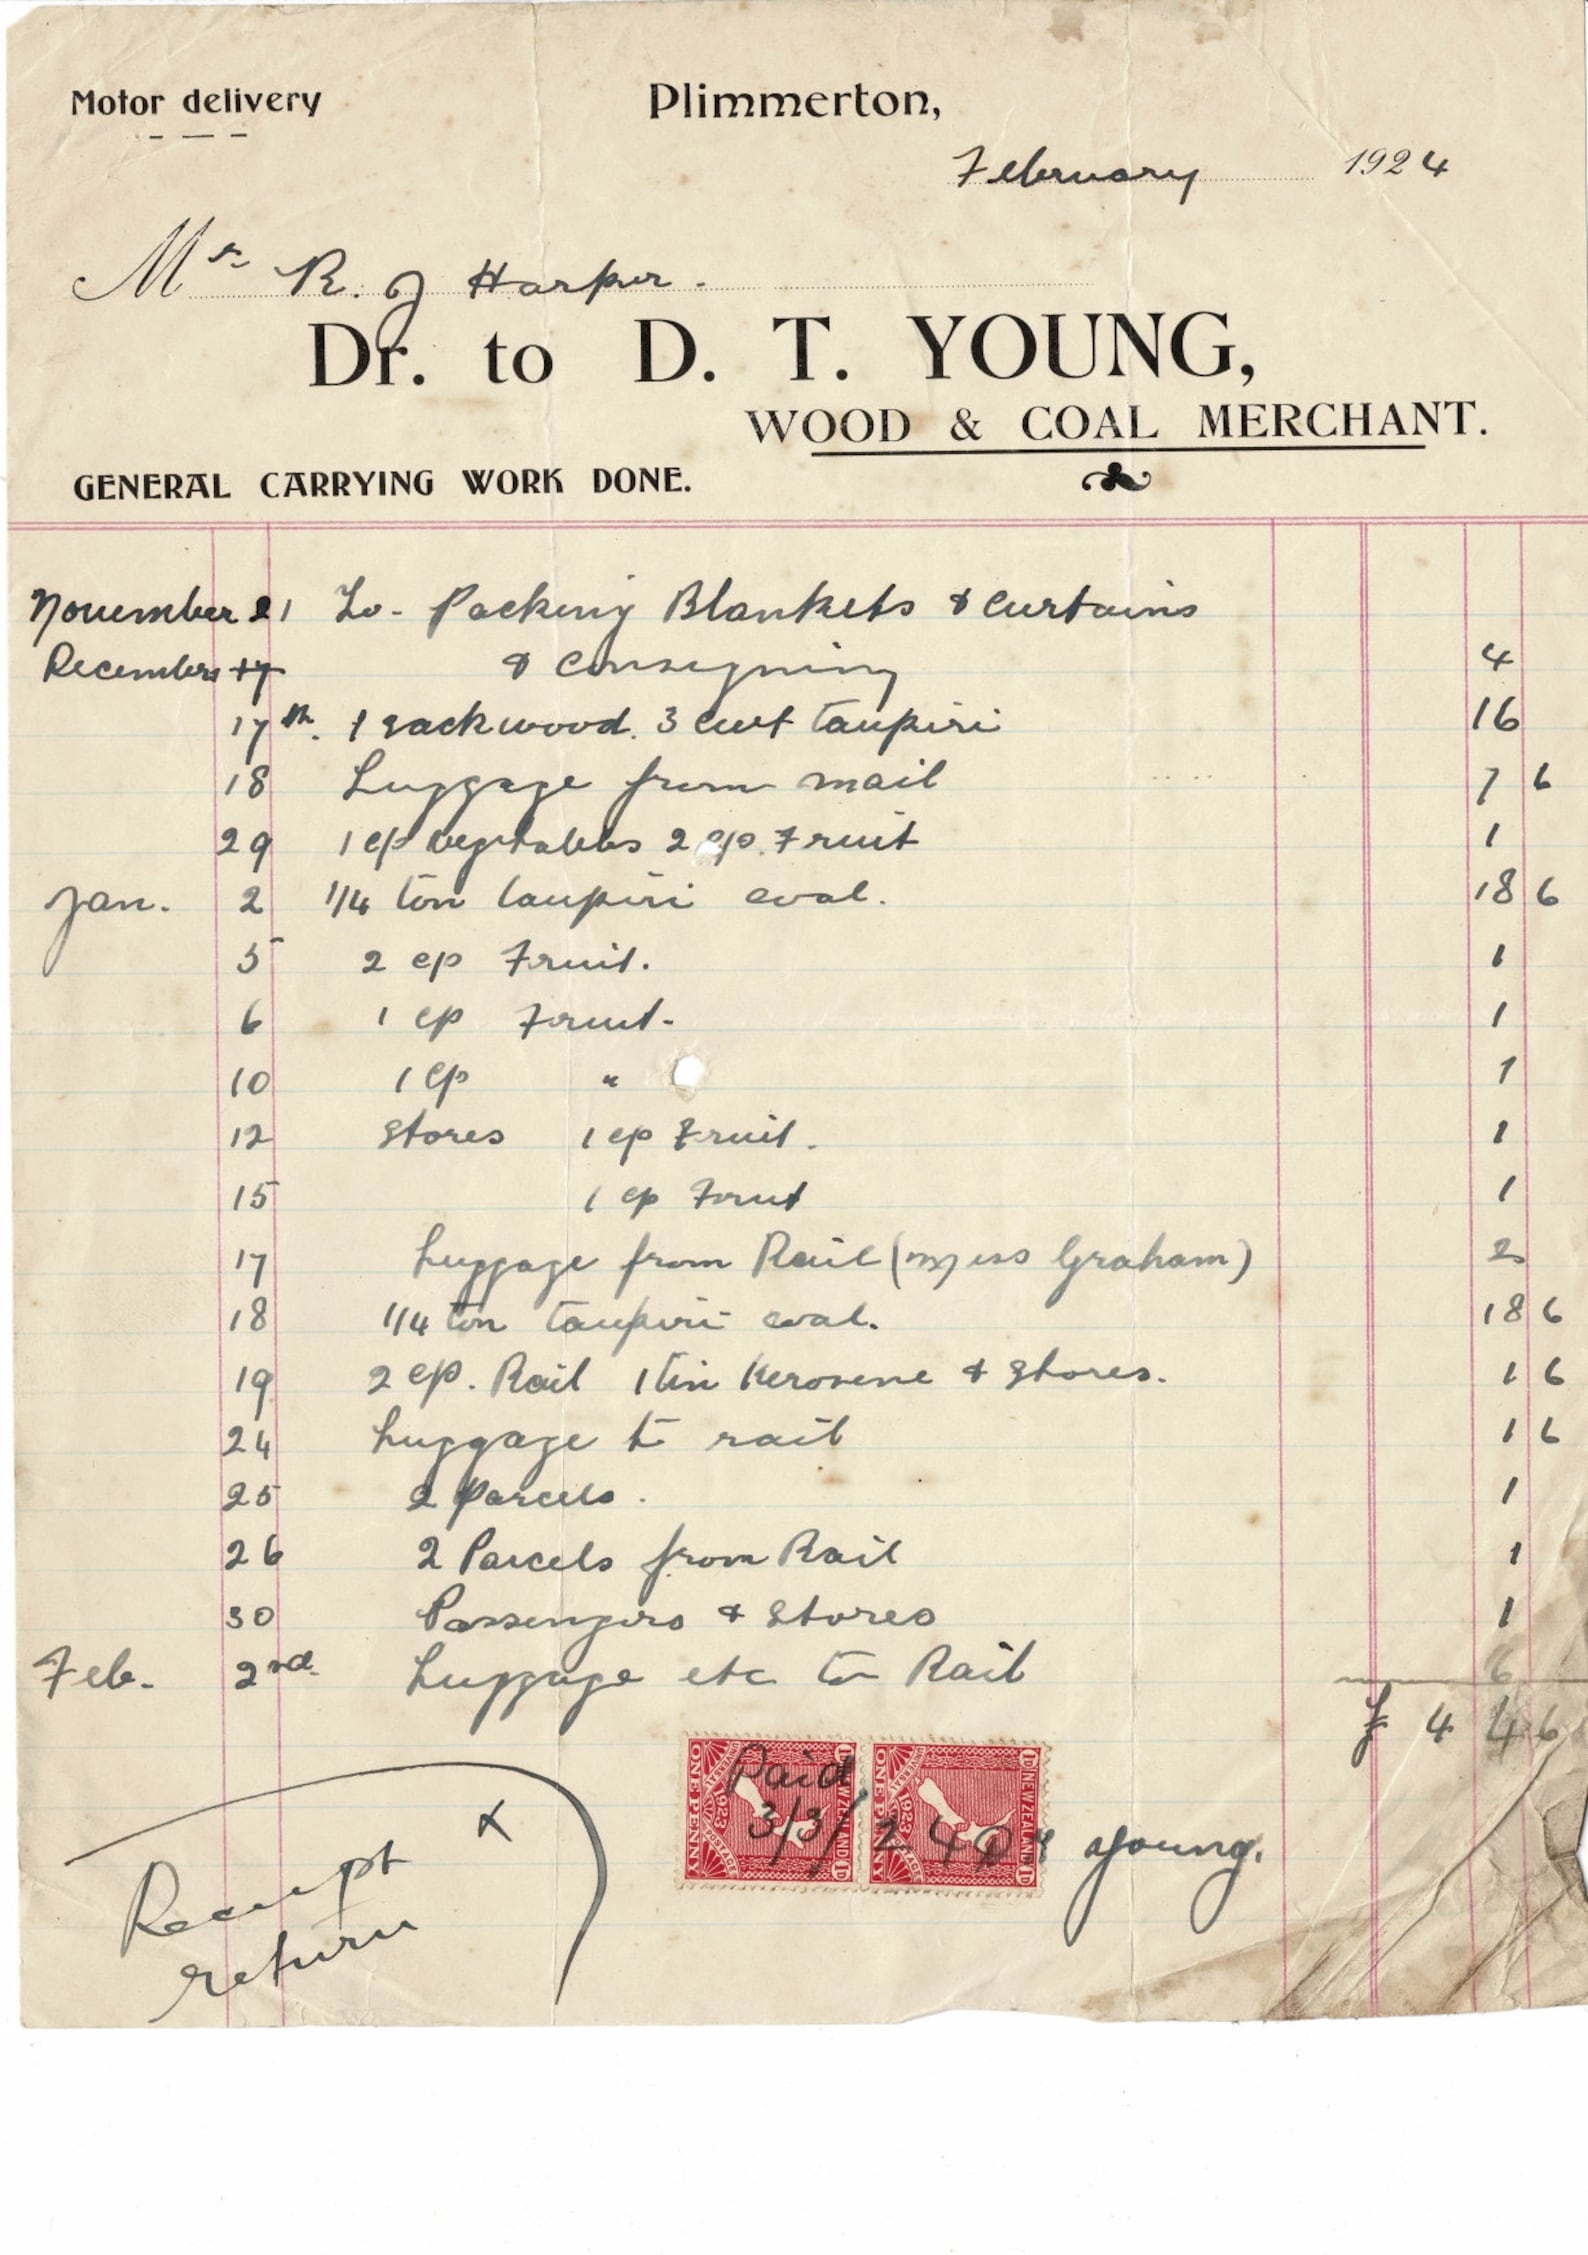 Motor delivery
Plimmerton,
February 1924
Mr R. J Harper.
Dr. to D. T. YOUNG,
WOOD & COAL MERCHANT.
GENERAL CARRYING WORK DONE.
November 21 To - Packing Blankets & Curtains
December 17 & Consigning 4
17th. 1 sack wood. 3 cwt taupiri 16
18 Luggage from mail 7 6
29 1 cp vegetables 2 cp. Fruit 1
Jan. 2 1/4 ton taupiri coal. 18 6
5 2 cp Fruit. 1
6 1 cp Fruit. 1
10 1 cp " 1
12 Stores 1 cp Fruit. 1
15 1 cp Fruit 1
17 Luggage from Rail (Miss Graham) 2
18 1/4 ton taupiri coal. 18 6
19 2 cp. Rail 1 tin Kerosene & Stores. 1 6
24 Luggage to rail 1 6
25 2 Parcels. 1
26 2 Parcels from Rail 1
30 Passengers & Stores 1
Feb. 2nd. Luggage etc to Rail 6
£ 4 4 6
Paid
3/3/24 Young.
NEW ZEALAND 1D
ONE PENNY
UNIVERSAL 1923 POSTAGE
1D NEW ZEALAND 1D
ONE PENNY
1923 POSTAGE
Receipt x
return